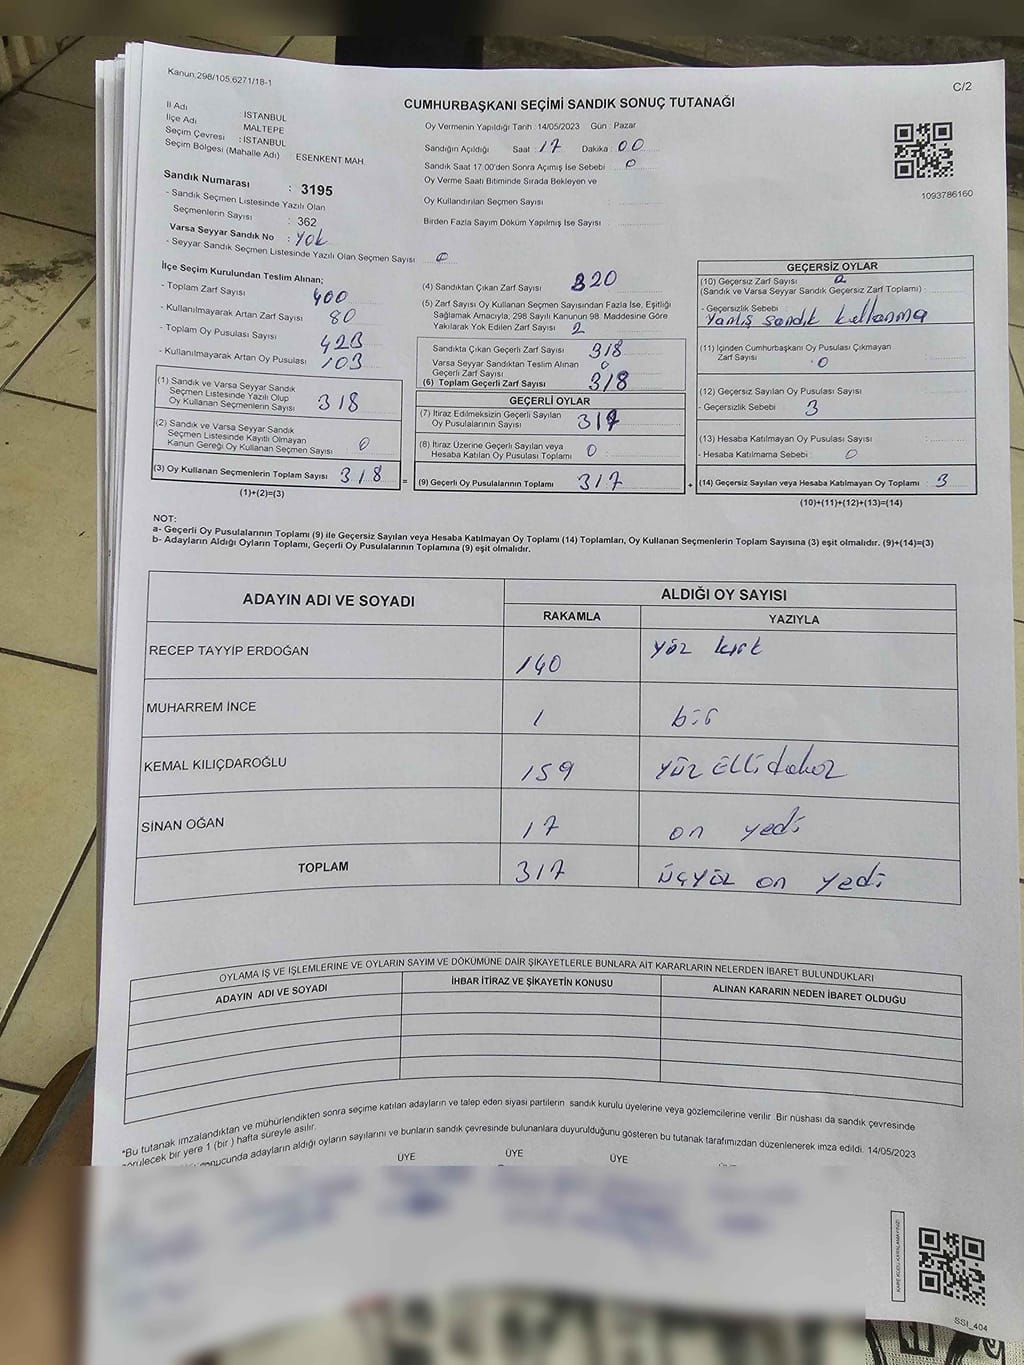 Kanun.298/105,627.1/18-1
C/2
CUMHURBAŞKANI SEÇİMİ SANDIK SONUÇ TUTANAĞI
İl Adı : İSTANBUL
İlçe Adı MALTEPE
Seçim Çevresi : İSTANBUL
Seçim Bölgesi (Mahalle Adı) ESENKENT MAH.
Oy Vermenin Yapıldığı Tarih :14/05/2023 Gün : Pazar
Sandığın Açıldığı Saat : 17 Dakika : 00
Sandık Saat 17:00'den Sonra Açımış İse Sebebi 0
Oy Verme Saati Bitiminde Sırada Bekleyen ve
Oy Kullandırılan Seçmen Sayısı :
Birden Fazla Sayım Döküm Yapılmış İse Sayısı :
1093786160
Sandık Numarası : 3195
- Sandık Seçmen Listesinde Yazılı Olan
Seçmenlerin Sayısı : 362
Varsa Seyyar Sandık No : Yok
- Seyyar Sandık Seçmen Listesinde Yazılı Olan Seçmen Sayısı : 0
İlçe Seçim Kurulundan Teslim Alınan;
- Toplam Zarf Sayısı 400
- Kullanılmayarak Artan Zarf Sayısı 80
- Toplam Oy Pusulası Sayısı 423
- Kullanılmayarak Artan Oy Pusulası 103
(1) Sandık ve Varsa Seyyar Sandık
Seçmen Listesinde Yazılı Olup
Oy Kullanan Seçmenlerin Sayısı 318
(2) Sandık ve Varsa Seyyar Sandık
Seçmen Listesinde Kayıtlı Olmayan
Kanun Gereği Oy Kullanan Seçmen Sayısı 0
(3) Oy Kullanan Seçmenlerin Toplam Sayısı 318
(1)+(2)=(3)
(4) Sandıktan Çıkan Zarf Sayısı 320
(5) Zarf Sayısı Oy Kullanan Seçmen Sayısından Fazla İse, Eşitliği
Sağlamak Amacıyla, 298 Sayılı Kanunun 98. Maddesine Göre
Yakılarak Yok Edilen Zarf Sayısı : 2
Sandıkta Çıkan Geçerli Zarf Sayısı 318
Varsa Seyyar Sandıktan Teslim Alınan
Geçerli Zarf Sayısı 0
(6) Toplam Geçerli Zarf Sayısı 318
GEÇERLİ OYLAR
(7) İtiraz Edilmeksizin Geçerli Sayılan
Oy Pusulalarının Sayısı 317
(8) İtiraz Üzerine Geçerli Sayılan veya
Hesaba Katılan Oy Pusulası Toplamı 0
= (9) Geçerli Oy Pusulalarının Toplamı 317
GEÇERSİZ OYLAR
(10) Geçersiz Zarf Sayısı
(Sandık ve Varsa Seyyar Sandık Geçersiz Zarf Toplamı) :
- Geçersizlik Sebebi
Yanlış sandık kullanma
(11) İçinden Cumhurbaşkanı Oy Pusulası Çıkmayan
Zarf Sayısı : 0
(12) Geçersiz Sayılan Oy Pusulası Sayısı :
- Geçersizlik Sebebi 3
(13) Hesaba Katılmayan Oy Pusulası Sayısı :
- Hesaba Katılmama Sebebi : 0
+ (14) Geçersiz Sayılan veya Hesaba Katılmayan Oy Toplamı : 3
(10)+(11)+(12)+(13)=(14)
NOT:
a- Geçerli Oy Pusulalarının Toplamı (9) ile Geçersiz Sayılan veya Hesaba Katılmayan Oy Toplamı (14) Toplamları, Oy Kullanan Seçmenlerin Toplam Sayısına (3) eşit olmalıdır. (9)+(14)=(3)
b- Adayların Aldığı Oyların Toplamı, Geçerli Oy Pusulalarının Toplamına (9) eşit olmalıdır.
ADAYIN ADI VE SOYADI ALDIĞI OY SAYISI
RAKAMLA YAZIYLA
RECEP TAYYİP ERDOĞAN 140 yüz kırk
MUHARREM İNCE 1 bir
KEMAL KILIÇDAROĞLU 159 yüz Elli dokuz
SİNAN OĞAN 17 on yedi
TOPLAM 317 üçyüz on yedi
OYLAMA İŞ VE İŞLEMLERİNE VE OYLARIN SAYIM VE DÖKÜMÜNE DAİR ŞİKAYETLERLE BUNLARA AİT KARARLARIN NELERDEN İBARET BULUNDUKLARI
ADAYIN ADI VE SOYADI İHBAR İTİRAZ VE ŞİKAYETİN KONUSU ALINAN KARARIN NEDEN İBARET OLDUĞU
*Bu tutanak imzalandıktan ve mühürlendikten sonra seçime katılan adayların ve talep eden siyasi partilerin sandık kurulu üyelerine veya gözlemcilerine verilir Bir nüshası da sandık çevresinde
görülecek bir yere 1 (bir ) hafta süreyle asılır.
sonucunda adayların aldığı oyların sayılarını ve bunların sandık çevresinde bulunanlara duyurulduğunu gösteren bu tutanak tarafımızdan düzenlenerek imza edildi. 14/05/2023
ÜYE ÜYE ÜYE
SSI_404